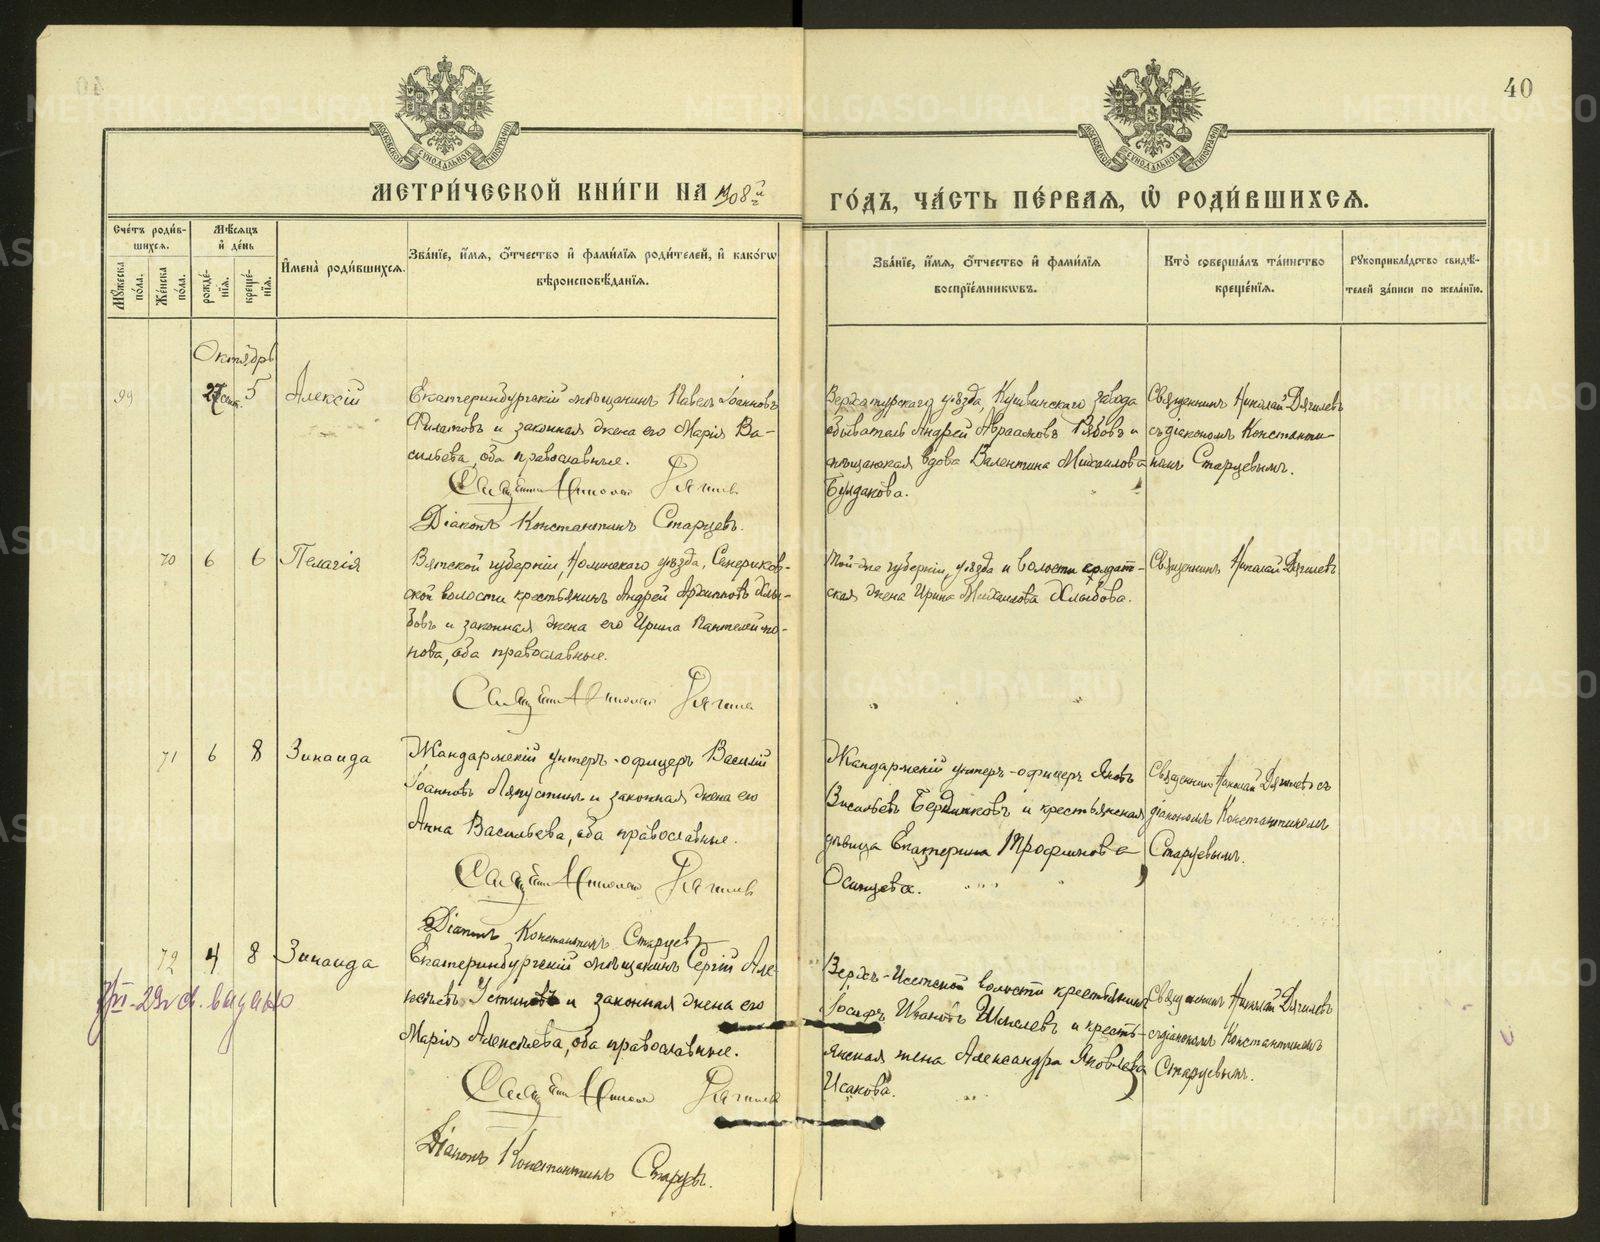 40
МОСКОВСКОЙ СѴНОДАЛЬНОЙ ТИПОГРАФІИ
МОСКОВСКОЙ СѴНОДАЛЬНОЙ ТИПОГРАФІИ
МЕТРИ́ЧЕСКОЙ КНИ́ГИ НА 1908й
ГО́ДЪ, ЧА́СТЬ ПЕ́РВАѦ, Ѡ҆ РОДИ́ВШИХСѦ.
Сче́тъ роди́в-
шихсѧ.
Мꙋ́жеска по́ла.
Же́нска по́ла.
Мѣ́сѧцъ
и҆ де́нь
рожде́-
нїѧ.
креще́-
нїѧ.
И҆мена̀ роди́вшихсѧ.
Зва́нїе, и҆́мѧ, ѻ҆́тчество и҆ фами́лїѧ роди́телей, и҆ како́гѡ
вѣроисповѣ́данїѧ.
Зва́нїе, и҆́мѧ, ѻ҆́тчество и҆ фами́лїѧ
воспрїе́мникѡвъ.
Кто̀ соверша́лъ та́инство
креще́нїѧ.
Рꙋкоприкла́дство свидѣ́-
телей за́писи по жела́нїю.
Октябрь
99
27 сент.
5
Алексій
Екатеринбургскій мѣщанинъ Павелъ Іоанновъ
Филатовъ и законная жена его Марія Ва-
сильева, оба православные.
Священникъ Николай Дягилевъ
Діаконъ Константинъ Старцевъ.
Верхотурскаго уѣзда, Кушвинскаго завода
обыватель Андрей Авраамовъ Рябовъ и
мѣщанская вдова Валентина Михаилова
Булдакова.
Священникъ Николай Дягилевъ
съ діакономъ Константи-
номъ Старцевымъ.
70
6
6
Пелагія
Вятской губерніи, Нолинскаго уѣзда,
ской волости крестьянинъ Андрей Архипповъ Хлы-
бовъ и законная жена его Ирина Пантелеймо-
нова, оба православные.
Священникъ Николай Дягилевъ
Той-же губерніи, уѣзда и волости солдат-
ская жена Ирина Михаилова Хлыбова.
Священникъ Николай Дягилевъ
71
6
8
Зинаида
Жандармскій унтеръ-офицеръ Василій
Іоанновъ Лапустинъ и законная жена его
Анна Васильева, оба православные.
Священникъ Николай Дягилевъ
Діаконъ Константинъ Старцевъ
Жандармскій унтеръ-офицеръ Яковъ
Васильевъ и крестьянская
дѣвица Екатерина Трофимова
Осинцева.
Священникъ Николай Дягилевъ съ
діакономъ Константиномъ
Старцевымъ.
72
4
8
Зинаида
29 выдано
Екатеринбургскій мѣщанинъ Сергій Але-
ксѣевъ Устиновъ и законная жена его
Марія Алексѣева, оба православные.
Священникъ Николай Дягилевъ
Діаконъ Константинъ Старцевъ.
Верхъ-Исетской волости крестьянинъ
Іосифъ Ивановъ Шмелевъ и кресть-
янская жена Александра Яковлева
Исакова.
Священникъ Николай Дягилевъ
съ діакономъ Константиномъ
Старцевымъ.
METRIKI.GASO-URAL.RU